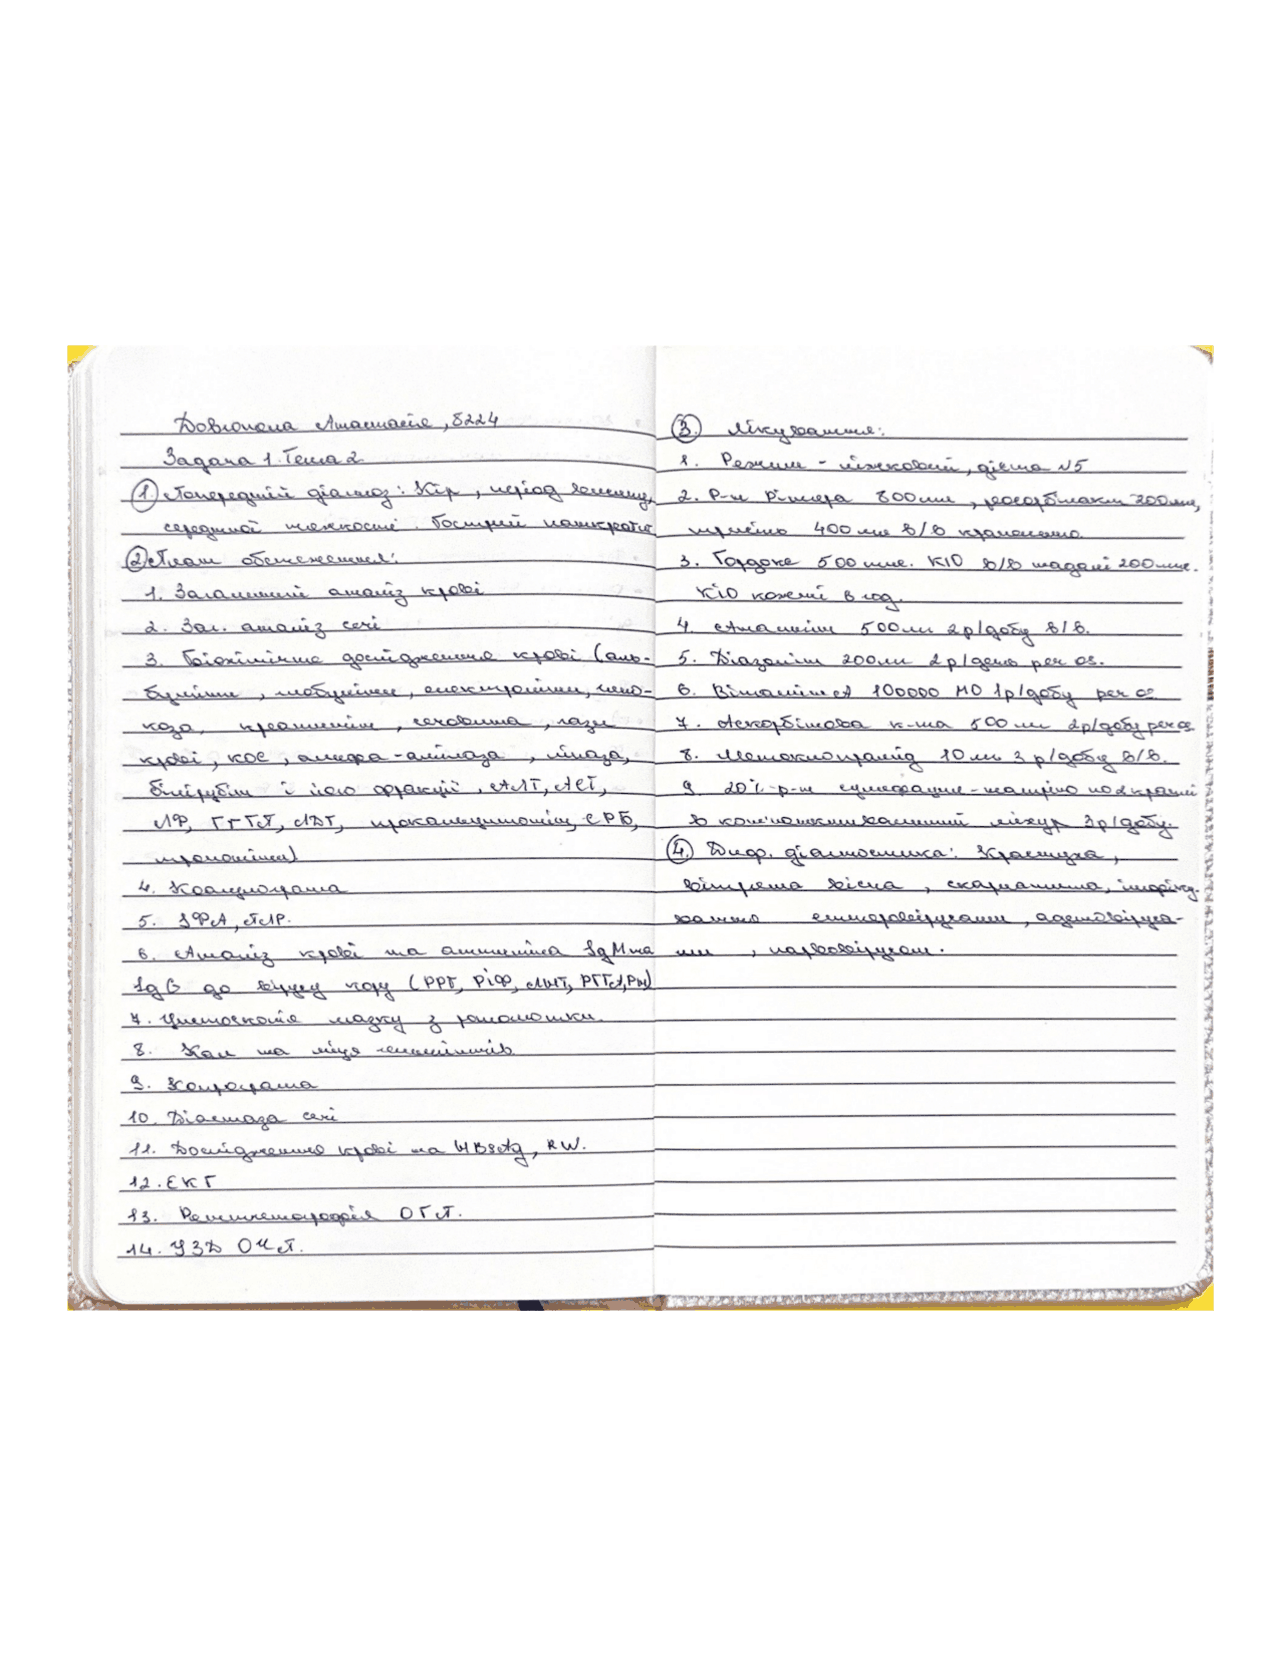 Довгопола Анастасія, 8224
Задача 1. Тема 2
① Попередній діагноз: Кір, період висипу,
середньої тяжкості. Гострий панкреатит
② План обстеження:
1. Загальний аналіз крові
2. Заг. аналіз сечі
3. Біохімічне дослідження крові (аль-
буміни, глобуліни, електроліти, глю-
коза, креатинін, сечовина, гази
крові, КОС, альфа-амілаза, ліпаза,
білірубін і його фракції, АЛТ, АСТ,
ЛФ, ГГТП, ЛДГ, прокальцитонін, СРБ,
тропоніни)
4. Коагулограма
5. ІФА, ПЛР.
6. Аналіз крові на антитіла IgM та
IgG до вірусу кору (РРГ, РІФ, РГГА, РН)
7. Цитоскопія мазку з ротоглотки.
8. Кал на яйця гельмінтів
9. Копрограма
10. Діастаза сечі
11. Дослідження крові на HBsAg, RW.
12. ЕКГ
13. Рентгенографія ОГП.
14. УЗД ОЧП.
③ Лікування:
1. Режим - ліжковий, дієта N5
2. Р-н Рінгера 800 мл, реосорбілакт 200 мл,
400 мл в/в крапельно.
3. Гордокс 500 тис. КІО в/в надалі 200 тис.
КІО кожні 6 год.
4. Анальгін 500 мг 2р/добу в/в.
5. Діазолін 200 мг 2р/день per os.
6. Вітамін А 100000 МО 1р/добу per os
7. Аскорбінова к-та 500 мг 2р/добу per os
8. Метоклопрамід 10 мг 3р/добу в/в.
9. 20% р-н сульфацил-натрію по 2 краплі
в кон'юнктивальний міхур 3р/добу.
④ Диф. діагностика: Краснуха,
вітряна віспа, скарлатина, інфіку-
вання ентеровірусами, аденовіруса-
ми, парвовірусом.